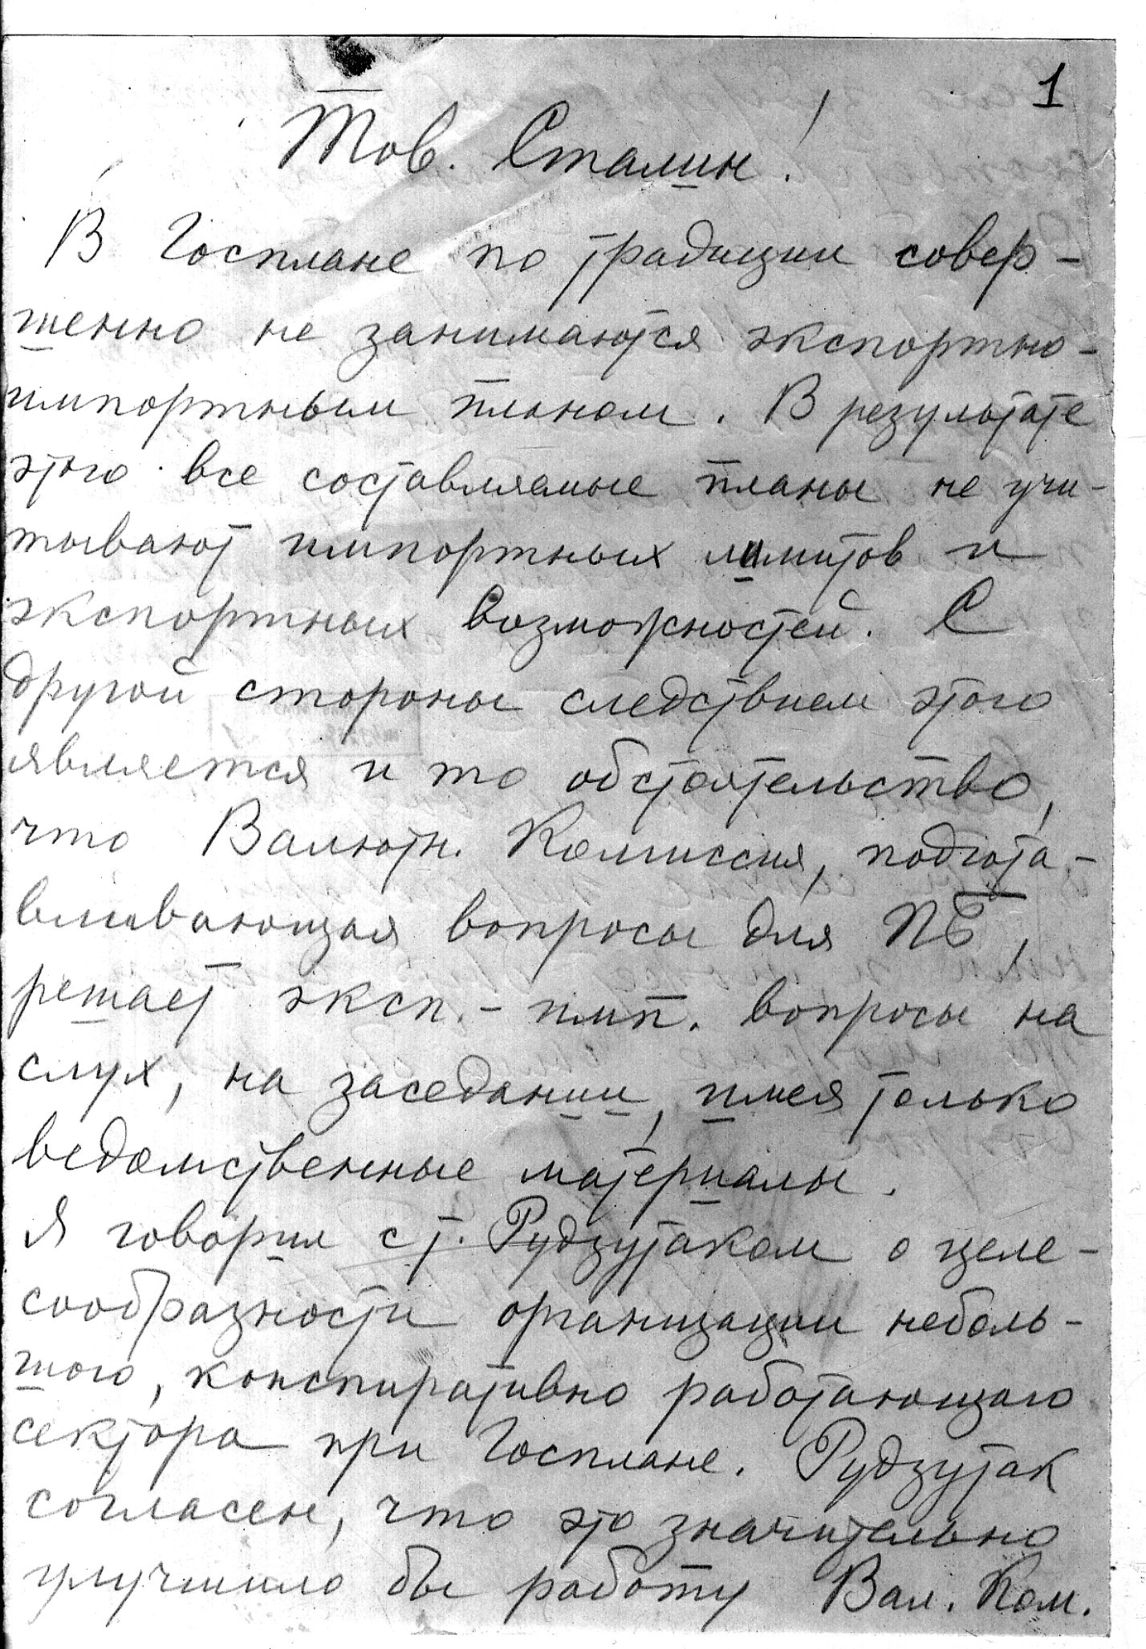 1
Тов. Сталин!
В Госплане по традиции совер-
шенно не занимаются экспортно-
импортным планом. В результате
этого все составляемые планы не учи-
тывают импортных лимитов и
экспортных возможностей. С
другой стороны следствием этого
является и то обстоятельство,
что Валютн. Комиссия, подгота-
вливающая вопросы для ПБ,
решает эксп.-имп. вопросы на
слух, на заседании, имея только
ведомственные материалы.
Я говорил с т. Рудзутаком о целе-
сообразности организации неболь-
шого, конспиративно работающего
сектора при Госплане. Рудзутак
согласен, что это значительно
улучшило бы работу Вал. Ком.